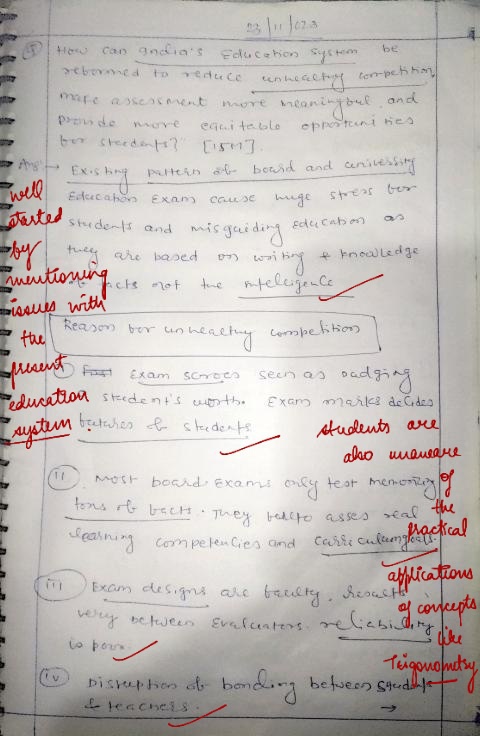 23/11/023
⑤ How can India's Education system be
reformed to reduce unhealthy competition,
make assessment more meaningful and
provide more equitable opportunities
for students?" [15M].
Ans → Existing pattern of board and university
Education Exam cause huge stress for
students and misguiding education as
they are based on writing & knowledge
of facts not the intelligence
well
started
by
mentioning
issues with
the
present
education
system.
Reason for unhealthy competition
Exam scroes seen as Judging
student's worth. Exam marks decides
futures of students
students are
also unaware
of
the
practical
applications
of concepts
like
Trigonometry
ii) Most board Exams only test memorizing
tons of facts. They fail to asses real
learning competencies and carriculum goals.
iii) Exam designs are faulty. Results
very between Evaluators. reliability
is poor.
iv) Disruption of bonding between students
& teachers. →